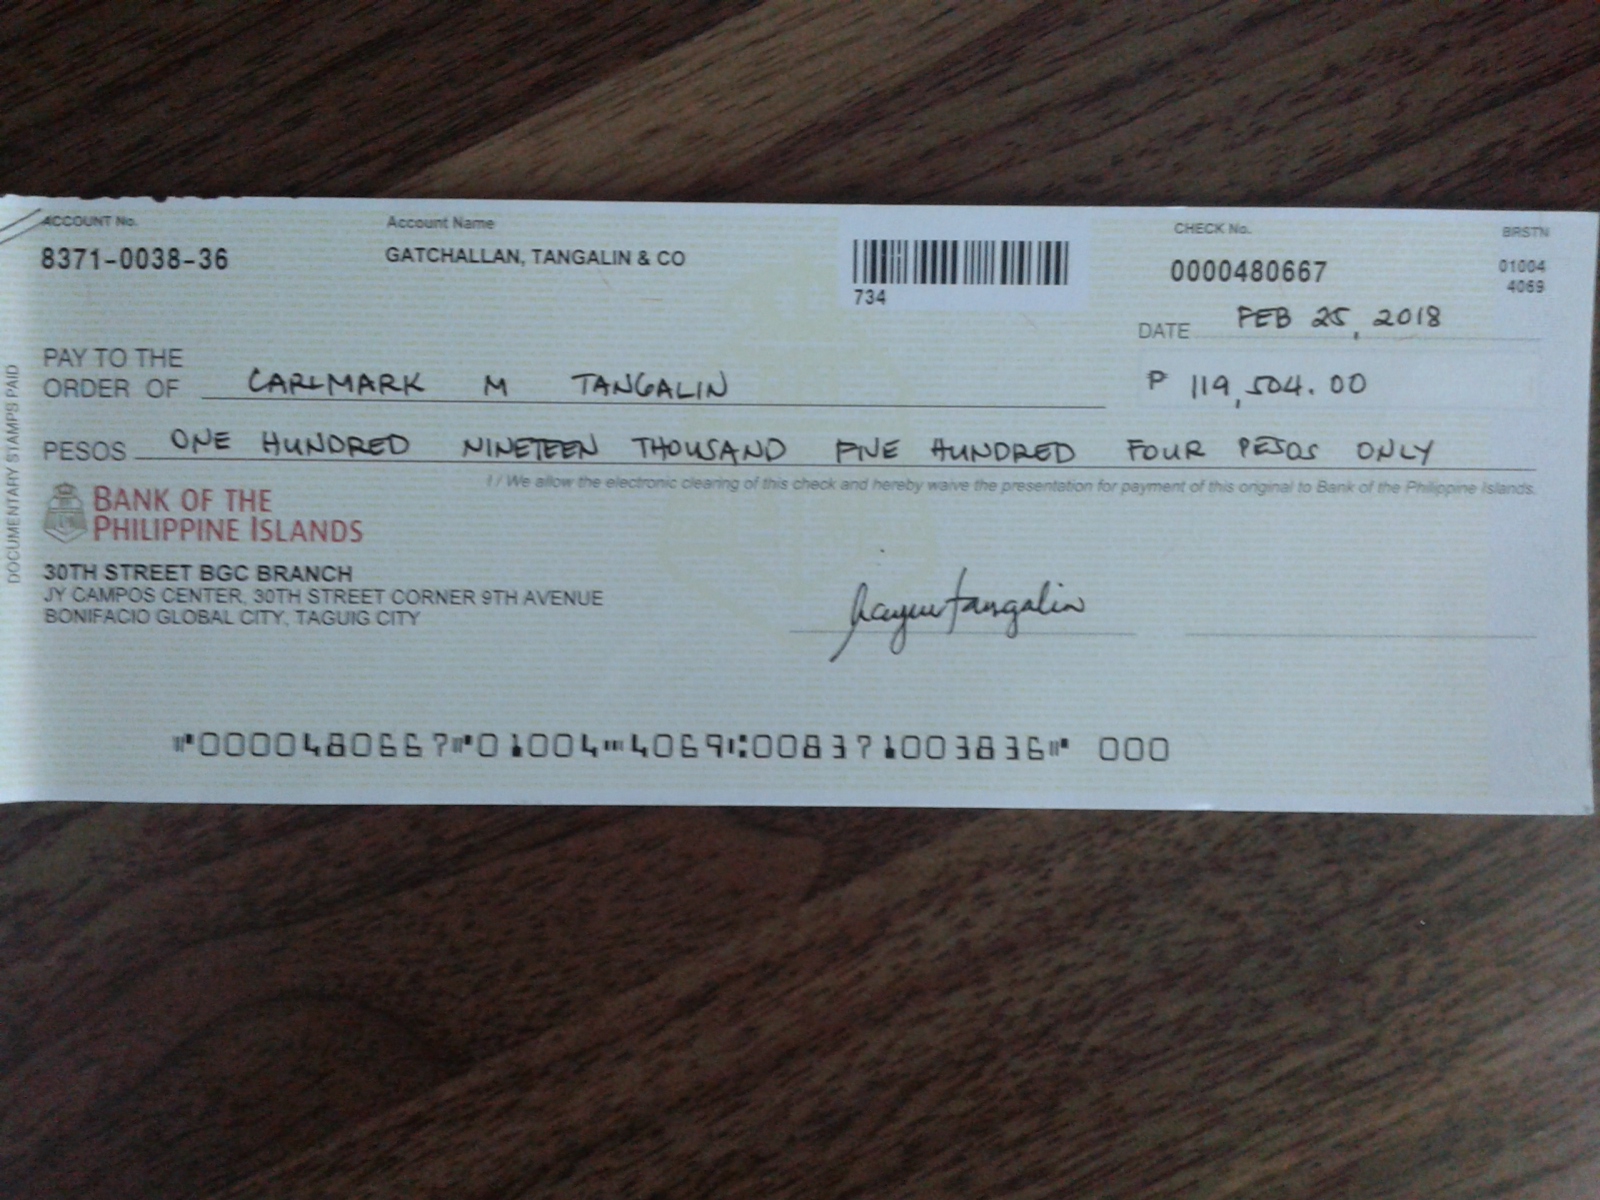 ACCOUNT No. Account Name CHECK No. BRSTN
8371-0038-36 GATCHALLAN, TANGALIN & CO 0000480667 01004
4069
734
DATE FEB 25, 2018
PAY TO THE
ORDER OF CARLMARK M TANGALIN P 119,504.00
PESOS ONE HUNDRED NINETEEN THOUSAND FIVE HUNDRED FOUR PESOS ONLY
I / We allow the electronic clearing of this check and hereby waive the presentation for payment of this original to Bank of the Philippine Islands.
BANK OF THE
PHILIPPINE ISLANDS
30TH STREET BGC BRANCH
JY CAMPOS CENTER, 30TH STREET CORNER 9TH AVENUE
BONIFACIO GLOBAL CITY, TAGUIG CITY
tangalin
⑈0000480667⑈01004⑉4069⑆008371003836⑈ 000
DOCUMENTARY STAMPS PAID